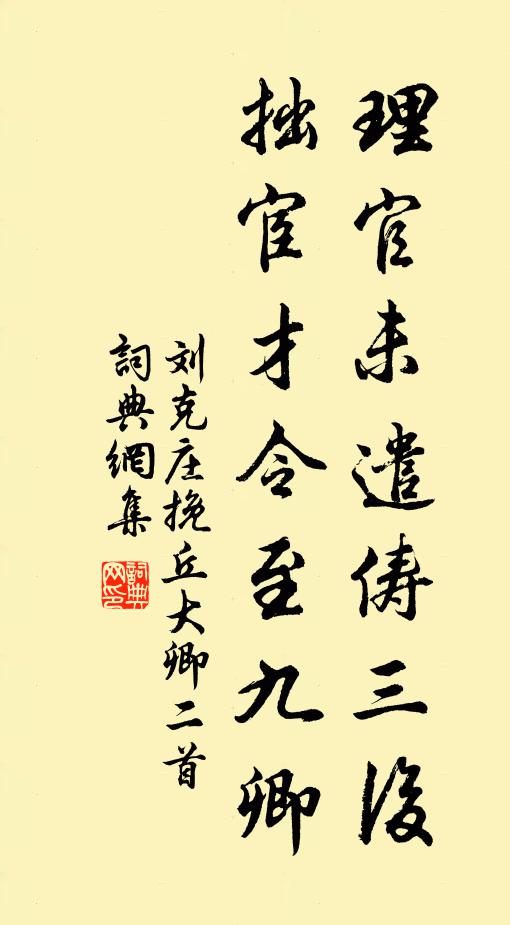 理官未遣俦三後
拙宦才令至九卿
刘克庄挽丘大卿二首
詞典網集
詞典
网印